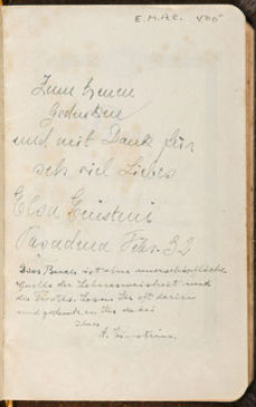 E.M.A.C.
Zum
Gedenken
und mit Dank für
sehr viel Liebes
Elsa Einstein
Pasadena Febr. 32
Dies Buch ist eine unerschöpfliche
Quelle der Lebensweisheit und
des Trostes. Lesen Sie oft darin
und gedenken Sie dabei
Ihres
A. Einstein.